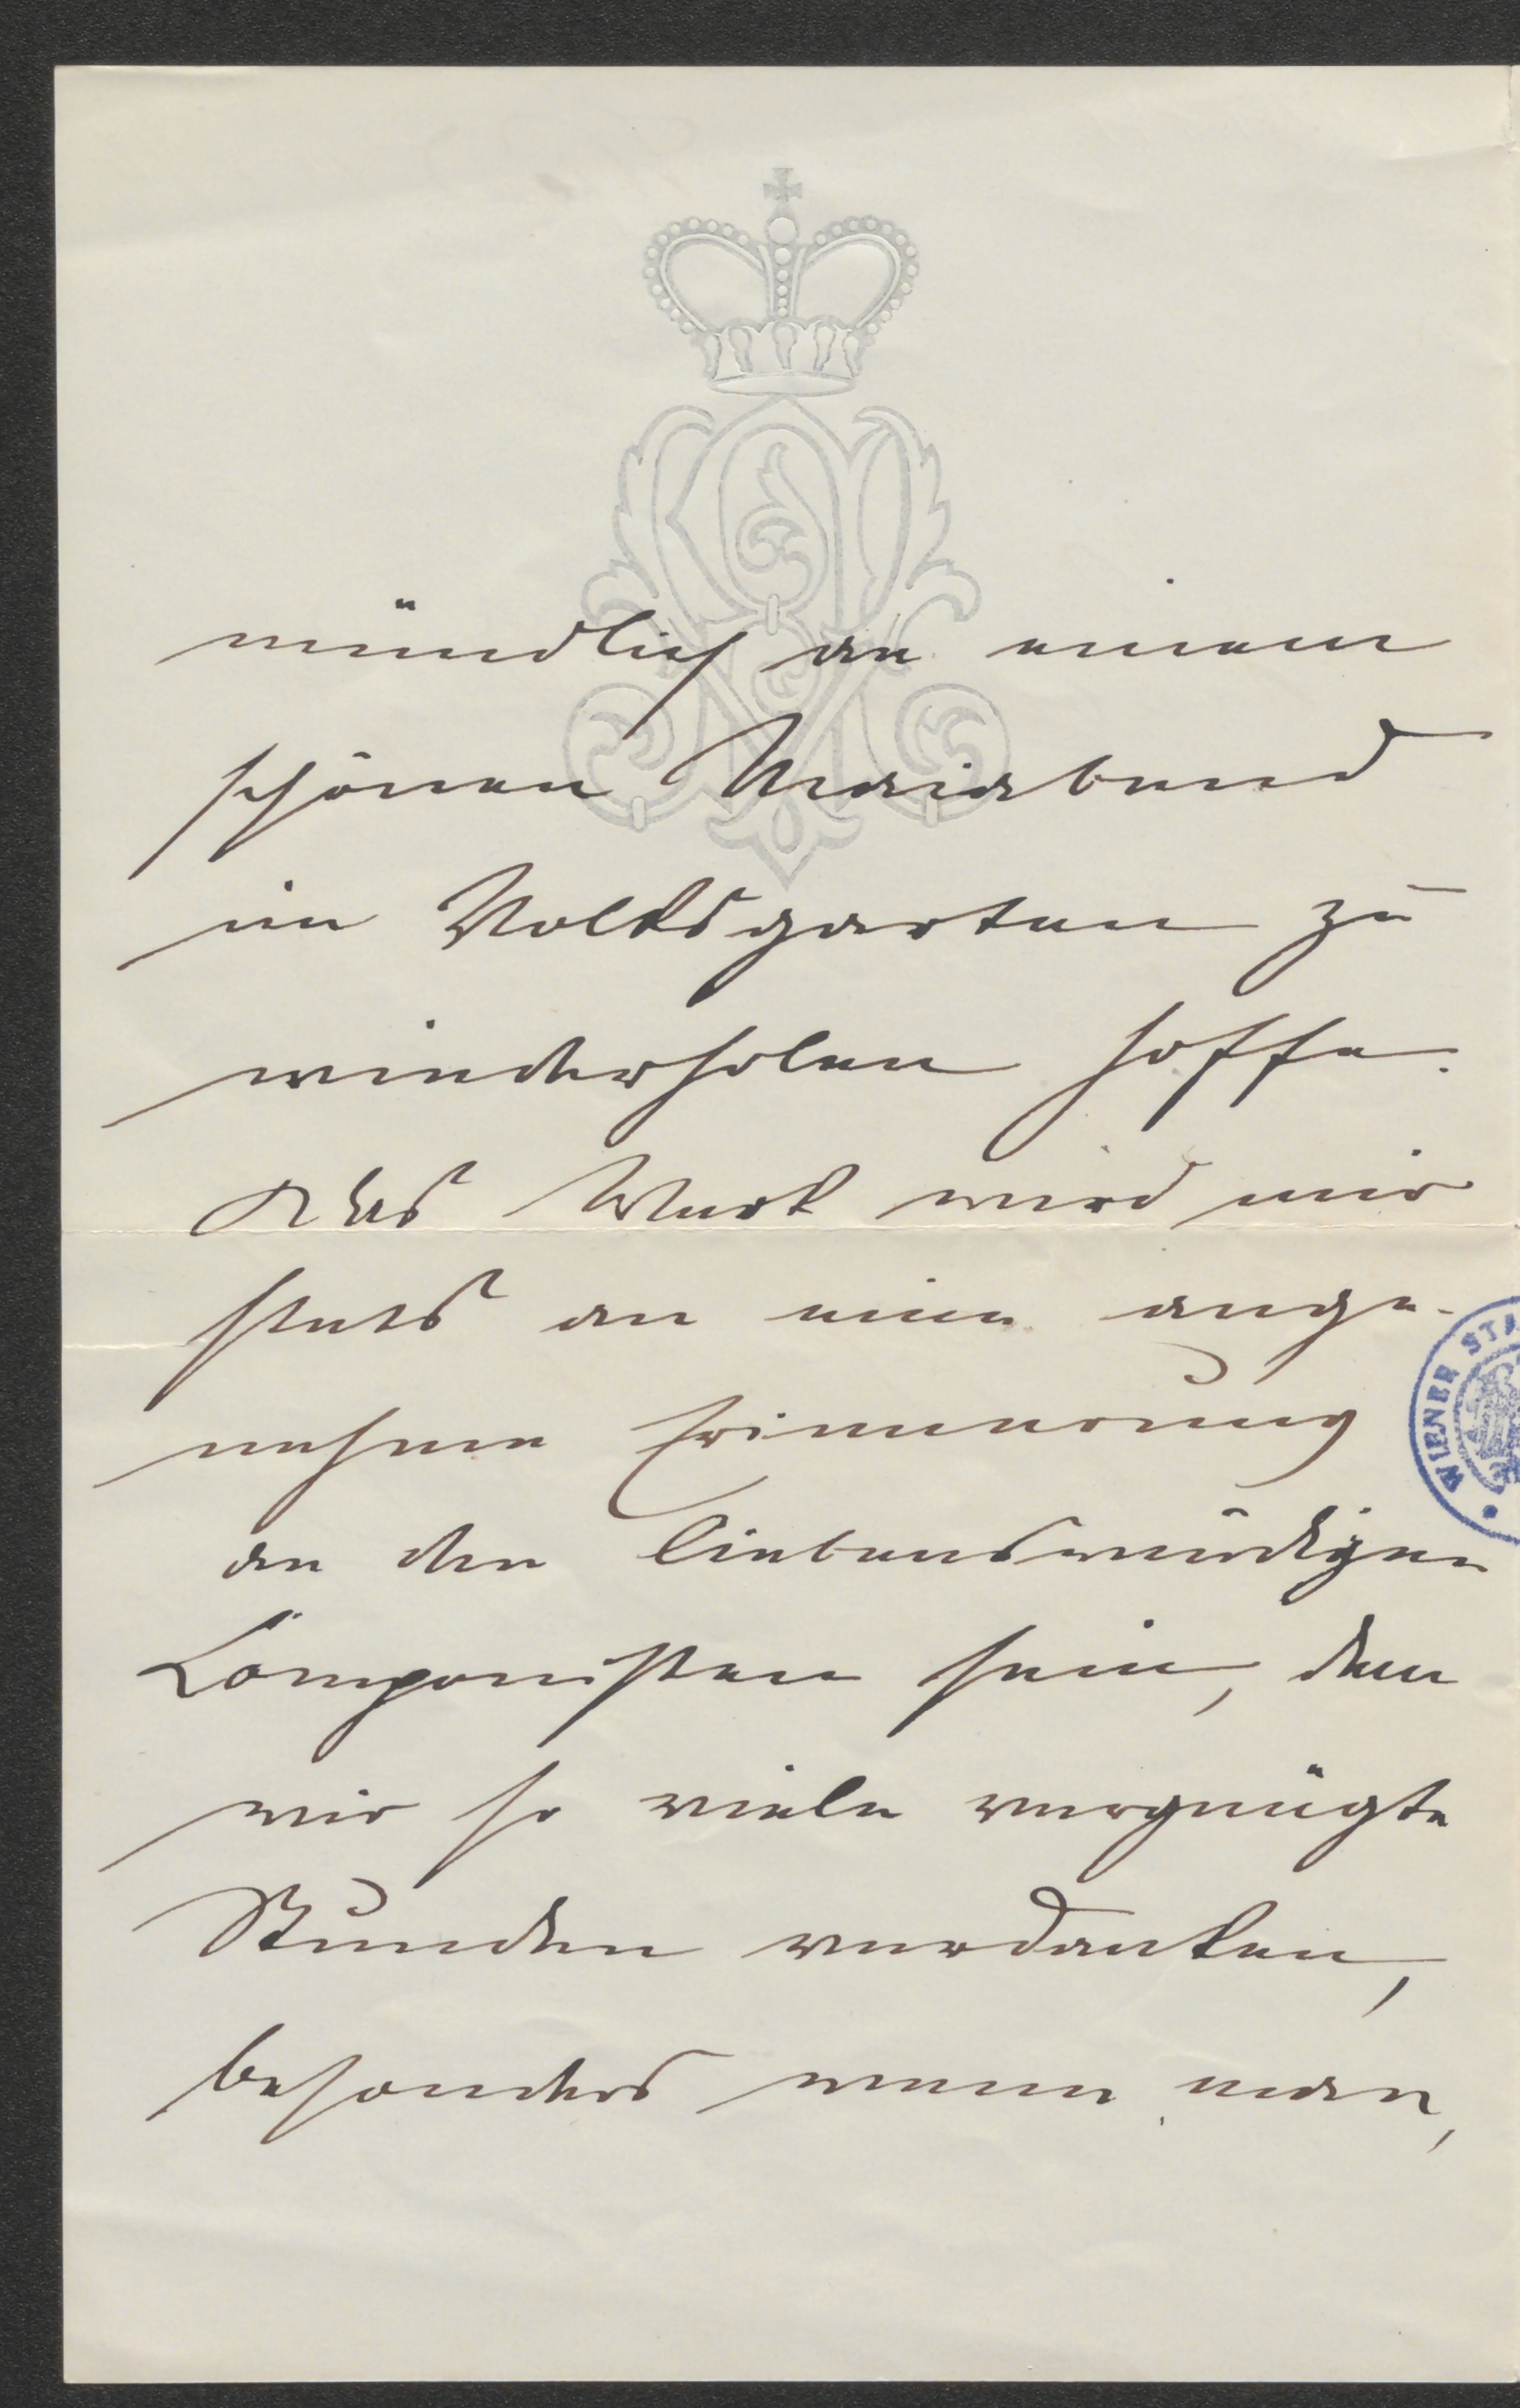 mündlich an einem
schönen Maiabend
im Volksgarten zu
wiederholen hoffe.
Das Werk wird mir
stets an eine ange-
nehme Erinnerung
an den liebenswürdigen
Componisten sein, dem
wir so viele vergnügte
Stunden verdanken,
besonders wenn man,
WIENER STA